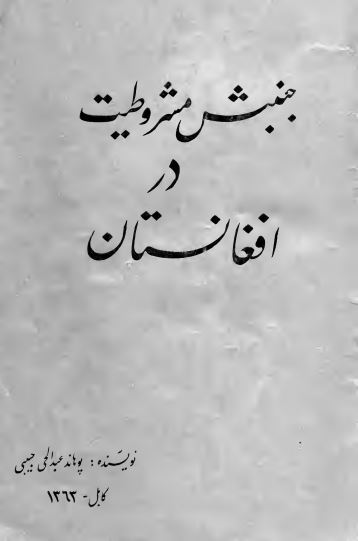 جنبش مشروطیت
در
افغانستان
نویسنده : پوهاند عبدالحی حبیبی
کابل - ۱۳۶۳